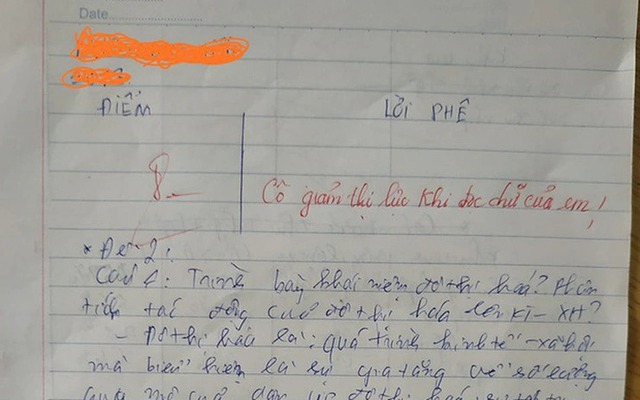 Date
ĐIỂM
LỜI PHÊ
8.
Cô giảm thị lực khi đọc chữ của em!
* Đề 2:
Câu 4: Trình bày khái niệm đô thị hoá? Phân
tích tác động của đô thị hóa lên KT-XH?
- Đô thị hóa là: quá trình kinh tế - xã hội
mà biểu hiện là sự gia tăng về số lượng
quy mô của